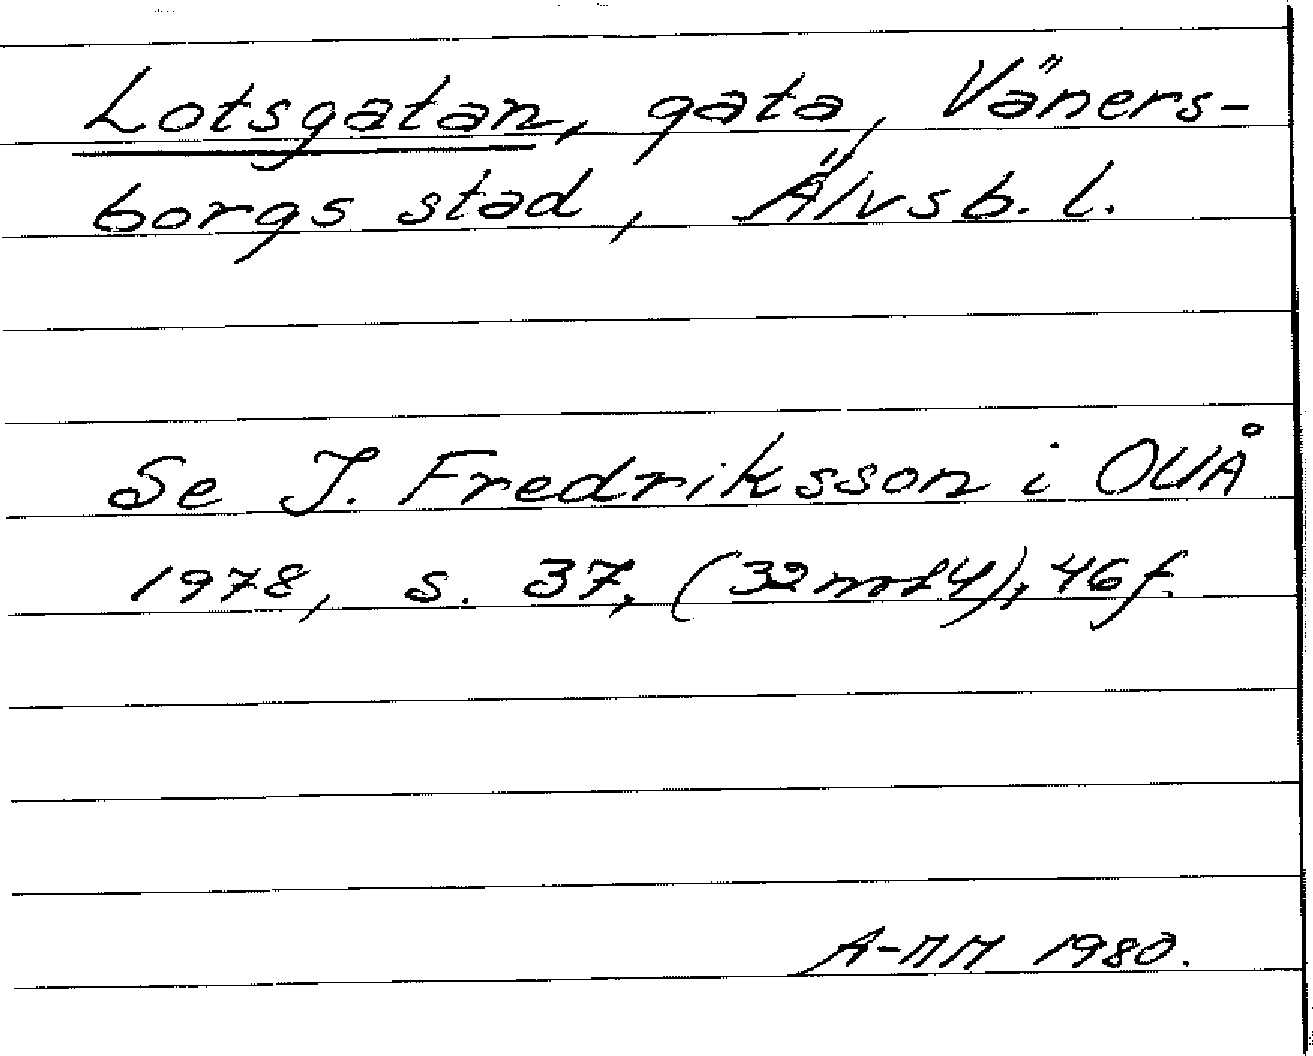 Lotsgatan, gata, Väners-
borgs stad, Älvsb. l.
Se J. Fredriksson i OUÅ
1978, s. 37, (32 not 4), 46 f.
A-MM 1980.